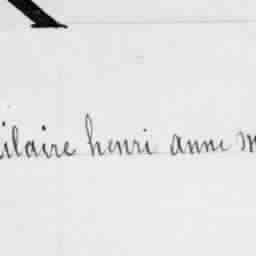 ilaire henri anne m